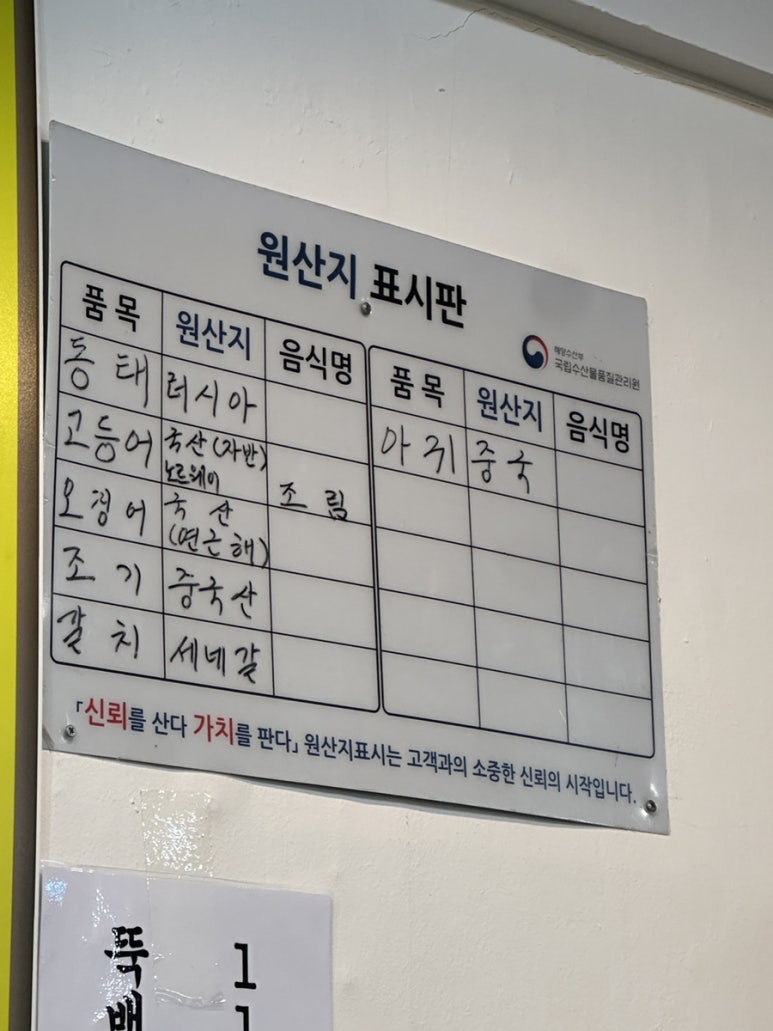 원산지 표시판
해양수산부
국립수산물품질관리원
품목 원산지 음식명
동태 러시아
고등어 국산(자반)
노르웨이 조림
오징어 국산
(연근해)
조기 중국산
갈치 세네갈
품목 원산지 음식명
아귀 중국
「신뢰를 산다 가치를 판다」 원산지표시는 고객과의 소중한 신뢰의 시작입니다.
뚝 1
배 1